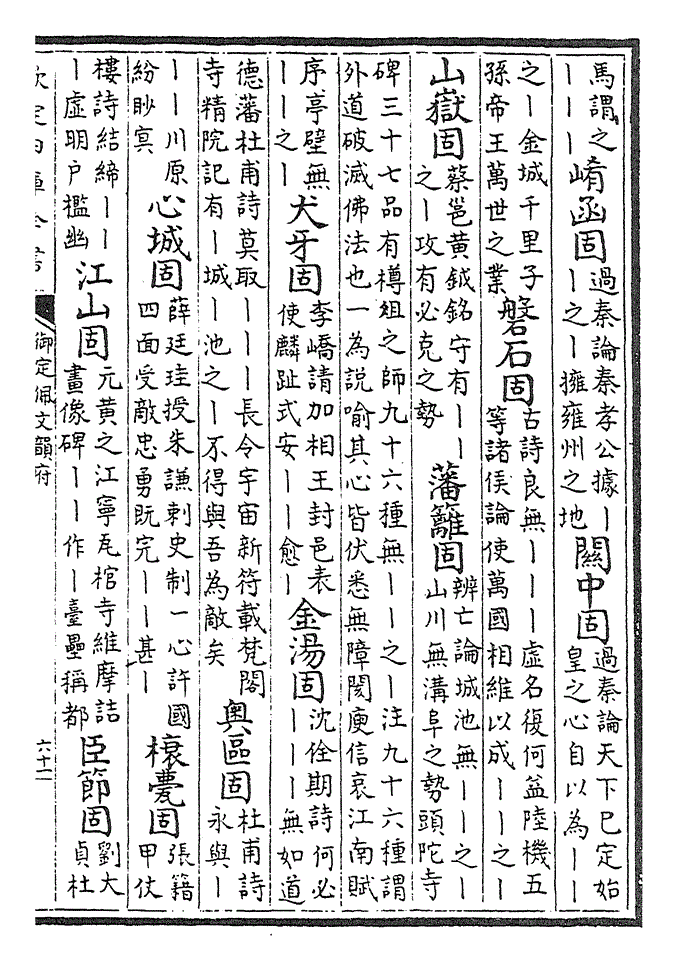 馬謂之
｜｜｜
崤函固
過秦論秦孝公據｜
｜之｜擁雍州之地
關中固
過秦論天下已定始
皇之心自以為｜｜
之｜金城千里子
孫帝王萬世之業
磐石固
古詩良無｜｜｜虛名復何益陸機五
等諸侯論使萬國相維以成｜｜之｜
山嶽固
蔡邕黄鉞銘守有｜｜
之｜攻有必克之勢
藩籬固
辨亡論城池無｜｜之｜
山川無溝阜之勢頭陀寺
碑三十七品有樽俎之師九十六種無｜｜之｜注九十六種謂
外道破滅佛法也一為説喻其心皆伏悉無障閡庾信哀江南賦
序亭壁無
｜｜之｜
犬牙固
李嶠請加相王封邑表
使麟趾式安｜｜愈｜
金湯固
沈佺期詩何必
｜｜｜無如道
德藩杜甫詩莫取｜｜｜長令宇宙新符載梵閣
寺精院記有｜城｜池之｜不得與吾為敵矣
奥區固
杜甫詩
永與｜
｜｜川原
紛眇冥
心城固
薛廷珪授朱謙刺史制一心許國
四面受敵忠勇既完｜｜甚｜
榱甍固
張籍
甲仗
樓詩結締｜｜
｜虛明户檻幽
江山固
元黄之江寧瓦棺寺維摩詰
畫像碑｜｜作｜臺壘稱都
臣節固
劉大
貞杜
欽定四庫全書
御定佩文韻府